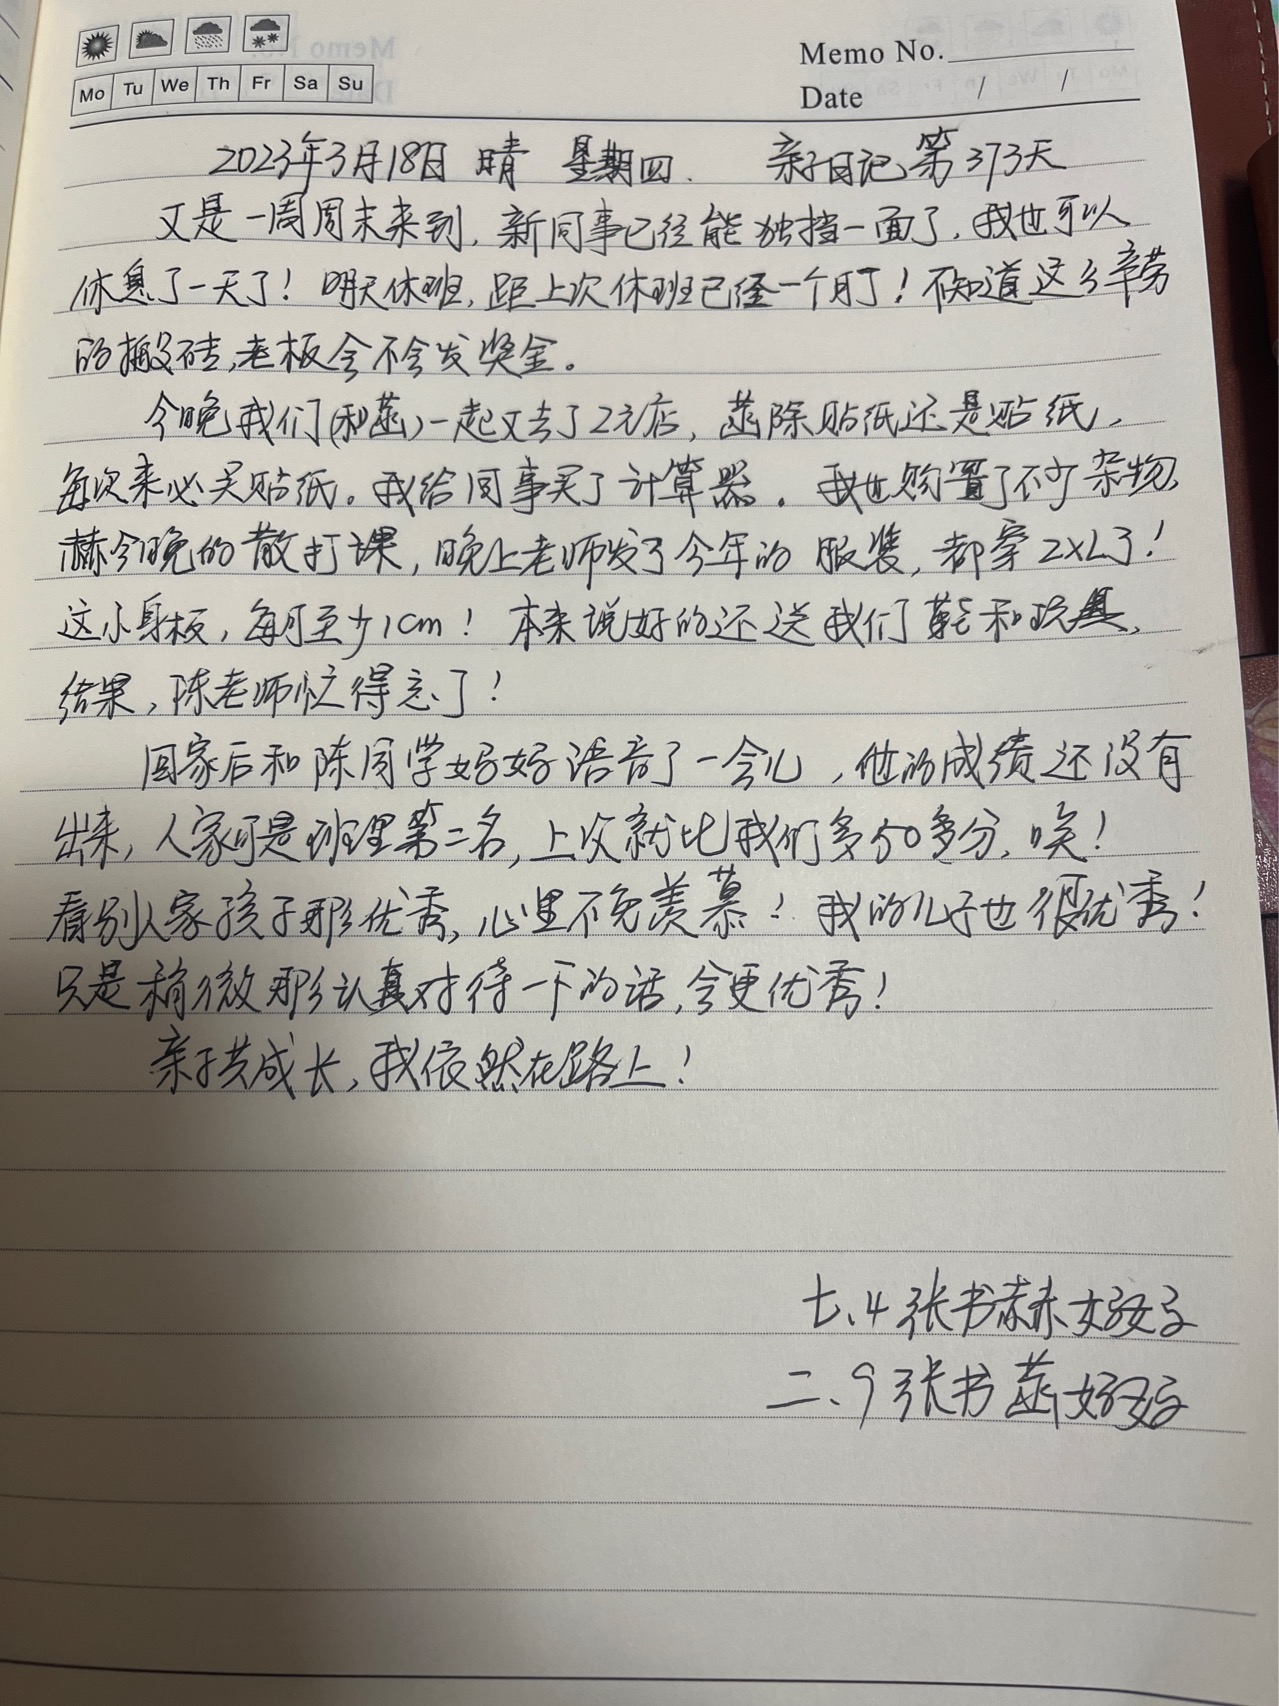 Mo Tu We Th Fr Sa Su
Memo No.
Date / /
2023年3月18日 晴 星期四. 亲子日记第373天
又是一周周末来到,新同事已经能独挡一面了,我也可以
休息了一天了!明天休班,距上次休班已经一个月了!不知道这么辛劳
的搬砖,老板会不会发奖金。
今晚我们(和菡)一起又去了2元店,菡除贴纸还是贴纸,
每次来必买贴纸。我给同事买了计算器。我也购置了不少杂物,
赫今晚的散打课,晚上老师发了今年的服装,都穿2XL了!
这小身板,每月至少1cm!本来说好的还送我们 和玩具,
结果,陈老师忙得忘了!
回家后和陈同学妈妈语音了一会儿,他的成绩还没有
出来,人家可是班里第二名,上次就比我们多50多分,唉!
看别人家孩子那么优秀,心里不免羡慕!我的儿子也很优秀!
只是稍微那么认真对待一下的话,会更优秀!
亲子共成长,我依然在路上!
七.4 张书赫妈妈
二.9 张书菡妈妈